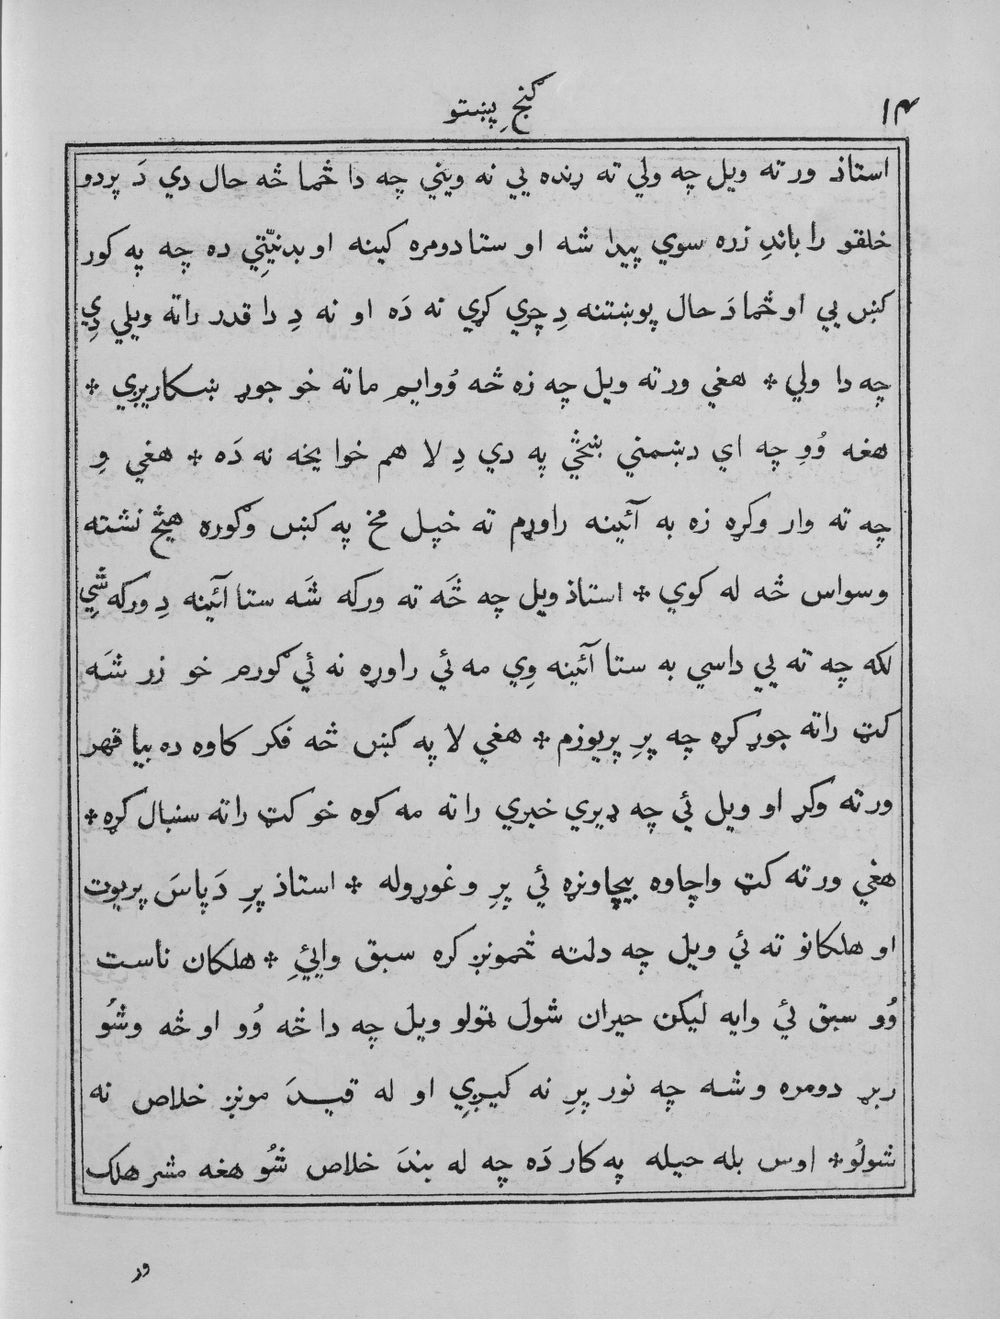 ۱۴
گنجِ پښتو
استاذ ورته ويل چه ولي ته ړنده يي نه ويني چه دا څما څه حال دي دَ پردو
خلقو را باندِ زره سوي پيدا شه او ستا دومره کينه او بدنيّتِي ده چه په کور
کښ يي او څما دَ حال پوښتنه دِ چري کړي نه دَه او نه دِ دا قدر راته ويلي دِي
چه دا ولي * هغي ورته ويل چه زه څه وُوايم ماته خو جوړ ښکاريږي *
هغه وُوِ چه اي دښمني ښځي په دي دِ لا هم خوا يخه نه دَه * هغي وِ
چه ته وار وکړه زه به آئينه راوړم ته خپل مخ په کښ وګوره هيڅ نشته
وسواس څه له کوي * استاذ ويل چه ځَه ته ورکه شَه ستا آئينه دِ ورکه شِي
لکه چه ته يي داسي به ستا آئينه وِي مه ئي راوړه نه ئي گورم خو زر شَه
کټ راته جوړ کړه چه پرِ پريوزم * هغي لا په کښ څه فکر کاوه ده بيا قهر
ورته وکړ او ويل ئي چه ډيري خبري راته مه کوه خو کټ راته سنبال کړه *
هغي ورته کټ واچاوه بيچاونړه ئي پرِ وغوړوله * استاذ پرِ دَپاسَ پريوت
او هلکانو ته ئي ويل چه دلته څمونږ کره سبق وايئِ * هلکان ناست
وُو سبق ئي وايه ليکن حيران شول ټولو ويل چه دا څه وُو او څه وشُو
ربړ دومره وشه چه نور پرِ نه کيږِي او له قيدَ مونږ خلاص نه
شولُو * اوس بله حيله په کار دَه چه له بندَ خلاص شُو هغه مشر هلک
ور